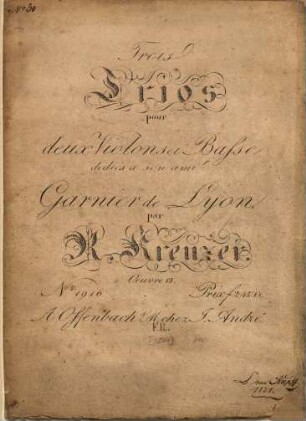 Trois
Trios
pour
deux Violons et Basse
dediés à son ami
Garnier de Lyon
par
R. Kreuzer.
Oeuvre
No. 1916 Prix f
A Offenbach s/M chez J. André